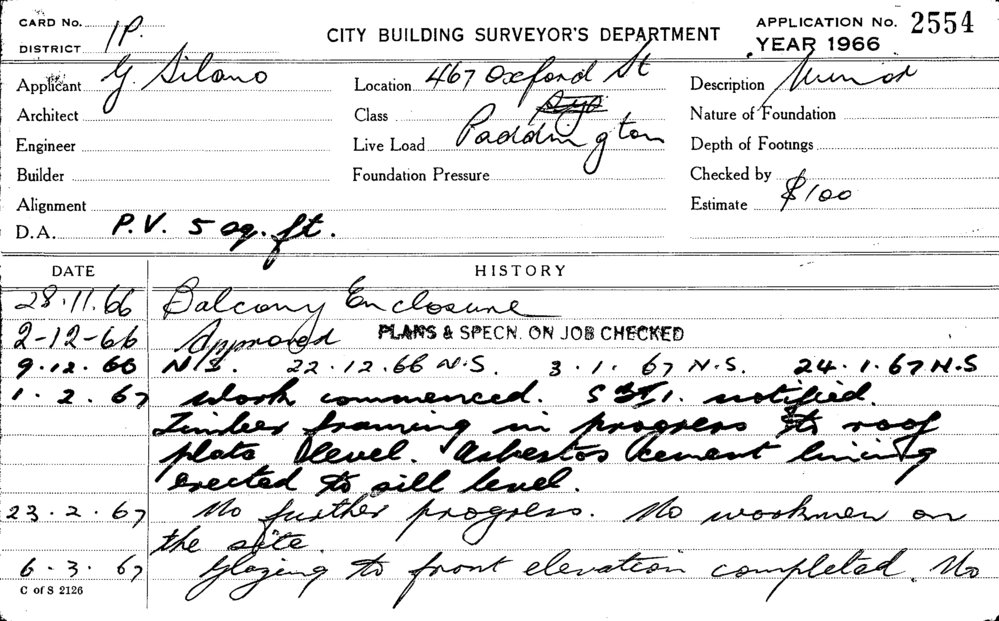 CARD No. 1P.
DISTRICT
CITY BUILDING SURVEYOR'S DEPARTMENT
APPLICATION No. 2554
YEAR 1966
Applicant G. Silano
Location 467 Oxford St
Description Minor
Architect
Class Syd
Nature of Foundation
Engineer
Live Load Paddington
Depth of Footings
Builder
Foundation Pressure
Checked by
Alignment
Estimate $100
D.A. P.V. 5 sq. ft.
DATE HISTORY
28.11.66 Balcony Enclosure
2-12-66 Approved PLANS & SPECN. ON JOB CHECKED
9.12.66 N.S. 22.12.66 N.S. 3.1.67 N.S. 24.1.67 N.S
1.2.67 Work commenced. notified.
Timber framing in progress to roof
plate level. Asbestos cement lining
erected to sill level.
23.2.67 No further progress. No workmen on
the site.
6.3.67 Glazing to front elevation completed. No
C of S 2126